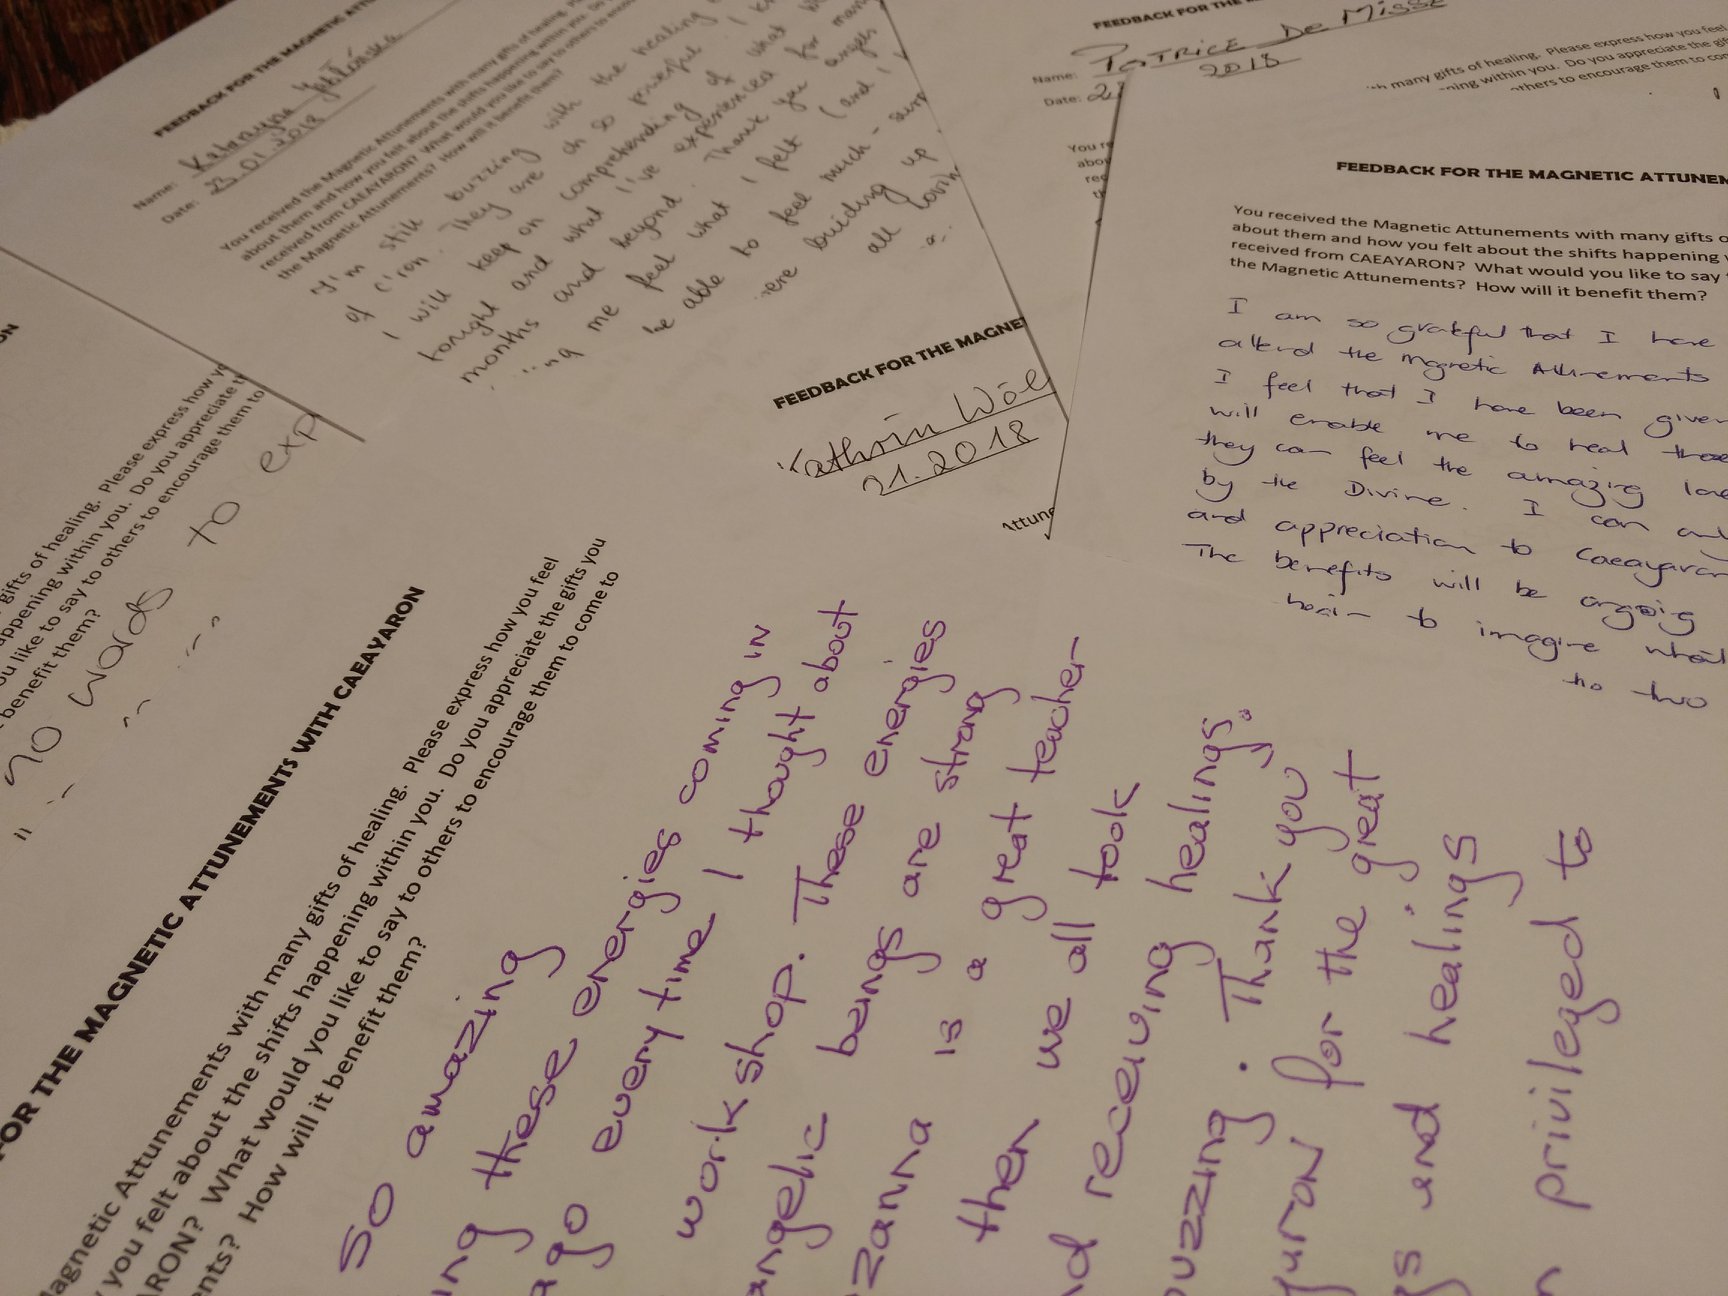 FEEDBACK FOR THE MAGNETIC
Name: Katarzyna
Date: 23.01.2018
You received the Magnetic Attunements with many gifts of healing.
about them and how you felt about the shifts happening within you. Do
received from CAEAYARON? What would you like to say to others to encou
the Magnetic Attunements? How will it benefit them?
I'm still buzzing with the healing
of c'ron. They are oh so powerful. I
I will keep on comprehending of what
tonight and what I've experienced for man
months and beyond. Thank you
me feel what I felt (and I
be able to feel much - 
ere building up
all
FEEDBACK FOR THE
Name: PATRICE DE MISS
Date: 2 2018
many gifts of healing. Please express how you feel
ning within you. Do you appreciate the gif
others to encourage them to com
You re
abou
rec
FEEDBACK FOR THE MAGNETIC ATTUNEM
You received the Magnetic Attunements with many gifts o
about them and how you felt about the shifts happening
received from CAEAYARON? What would you like to say
the Magnetic Attunements? How will it benefit them?
I am so grateful that I have
attend the Magnetic Attunements
I feel that I have been given
will enable me to heal those
they can feel the amazing love
by the Divine. I can only
and appreciation to Caeayaron
The benefits will be ongoing
to imagine what
two
FEEDBACK FOR THE MAGNE
Kathrin Wöl
21.2018
Attune
ON
gifts of healing. Please express how yo
appening within you. Do you appreciate t
ou like to say to others to encourage them to
benefit them?
no words to exp
FOR THE MAGNETIC ATTUNEMENTS WITH CAEAYARON
Magnetic Attunements with many gifts of healing. Please express how you feel
you felt about the shifts happening within you. Do you appreciate the gifts you
ARON? What would you like to say to others to encourage them to come to
ents? How will it benefit them?
So amazing
ing these energies coming in
ago every time I thought about
workshop. These energies
angelic beings are strong
zanna is a great teacher
then we all took
nd receiving healings.
buzzing. Thank you
yaron for the great
gs and healings
n privileged to